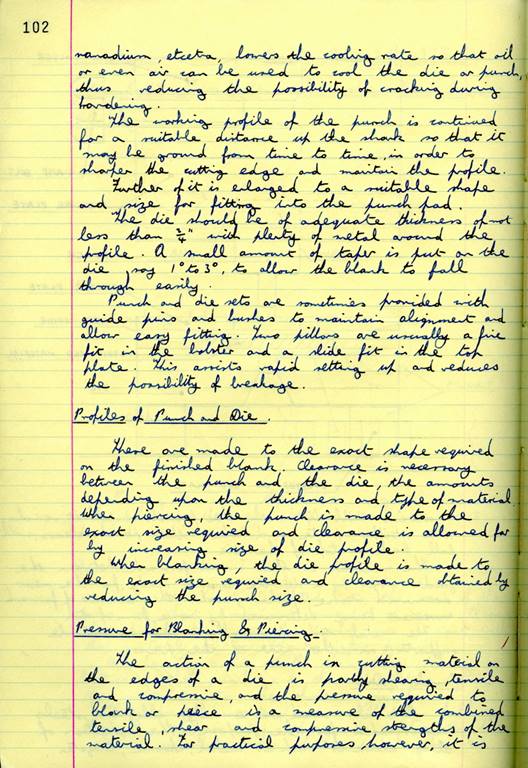 102
vanadium, etceta, lowers the cooling rate so that oil
or even air can be used to cool the die or punch,
thus reducing the possibility of cracking during
hardening.
The working profile of the punch is continued
for a suitable distance up the shank so that it
may be ground from time to time, in order to
sharpen the cutting edge and maintain the profile.
Further up it is enlarged to a suitable shape
and size for fitting into the punch pad.
The die should be of adequate thickness of not
less than ¾" with plenty of metal around the
profile. A small amount of taper is put on the
die, say 1° to 3°, to allow the blank to fall
through easily.
Punch and die sets are sometimes provided with
guide pins and bushes to maintain alignment and
allow easy fitting. Two pillars are usually a fixe
fit in the bolster and a slide fit in the top
plate. This assists rapid setting up and reduces
the possibility of breakage.
Profiles of Punch and Die.
These are made to the exact shape required
on the finished blank. Clearance is necessary
between the punch and the die, the amounts
depending upon the thickness and type of material.
When piercing, the punch is made to the
exact size required and clearance is allowed for
by increasing size of die profile.
When blanking, the die profile is made to
the exact size required and clearance obtained by
reducing the punch size.
Pressure for Blanking & Piercing.
The action of a punch in cutting material on
the edges of a die is partly shearing, tensile
and compressive, and the pressure required to
blank or pierce is a measure of the combined
tensile, shear and compressive strengths of the
material. For practical purposes however, it is